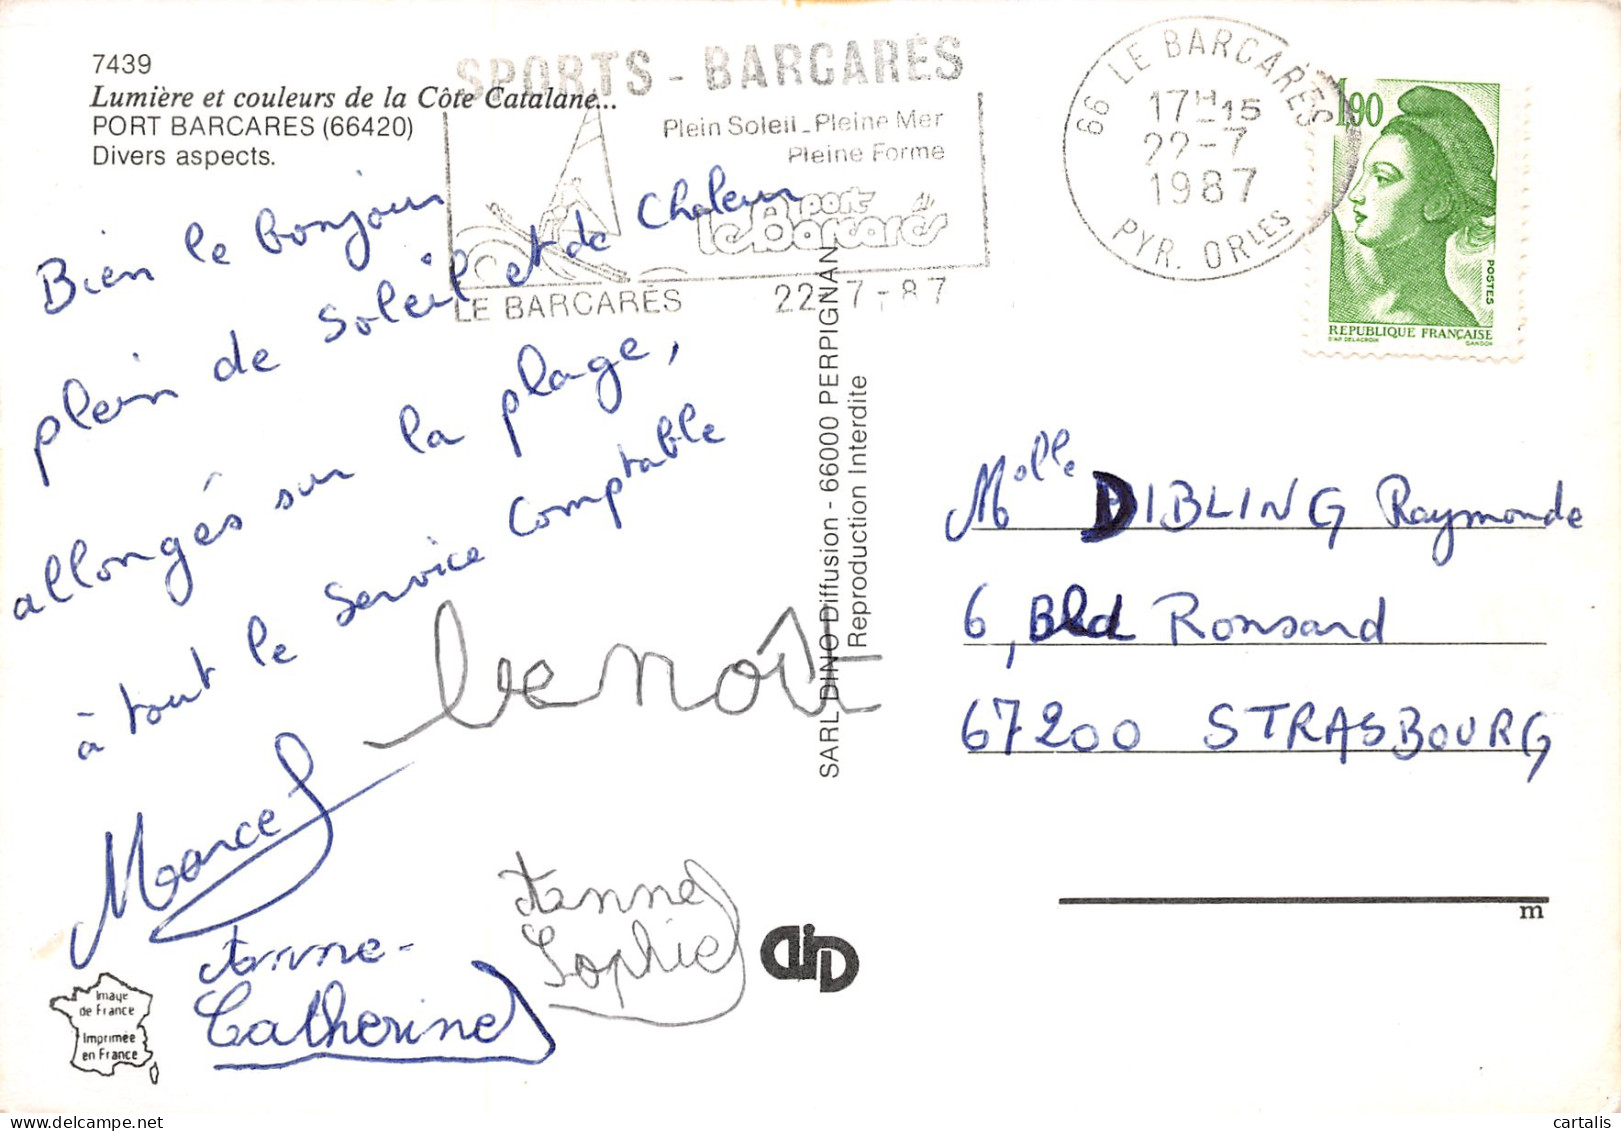 7439
Lumière et couleurs de la Côte Catalane...
PORT BARCARES (66420)
Divers aspects.
SPORTS - BARCARÈS
Plein Soleil - Pleine Mer
Pleine Forme
port
le Barcarès
LE BARCARÈS 22-7-87
66 LE BARCARÈS
17H15
22-7
1987
PYR. ORLES
1,90
POSTES
REPUBLIQUE FRANÇAISE
D'AP. DELACROIX GANDON
Bien le bonjour
plein de soleil et de chaleur
allongés sur la plage,
à tout le service comptable
benoît
Marcel
Anne-
Catherine
Anne
Sophie
SARL DINO Diffusion - 66000 PERPIGNAN
Reproduction Interdite
Melle DIBLING Raymonde
6, Bld Ronsard
67200 STRASBOURG
m
Image
de France
Imprimée
en France
delcampe.net
cartalis